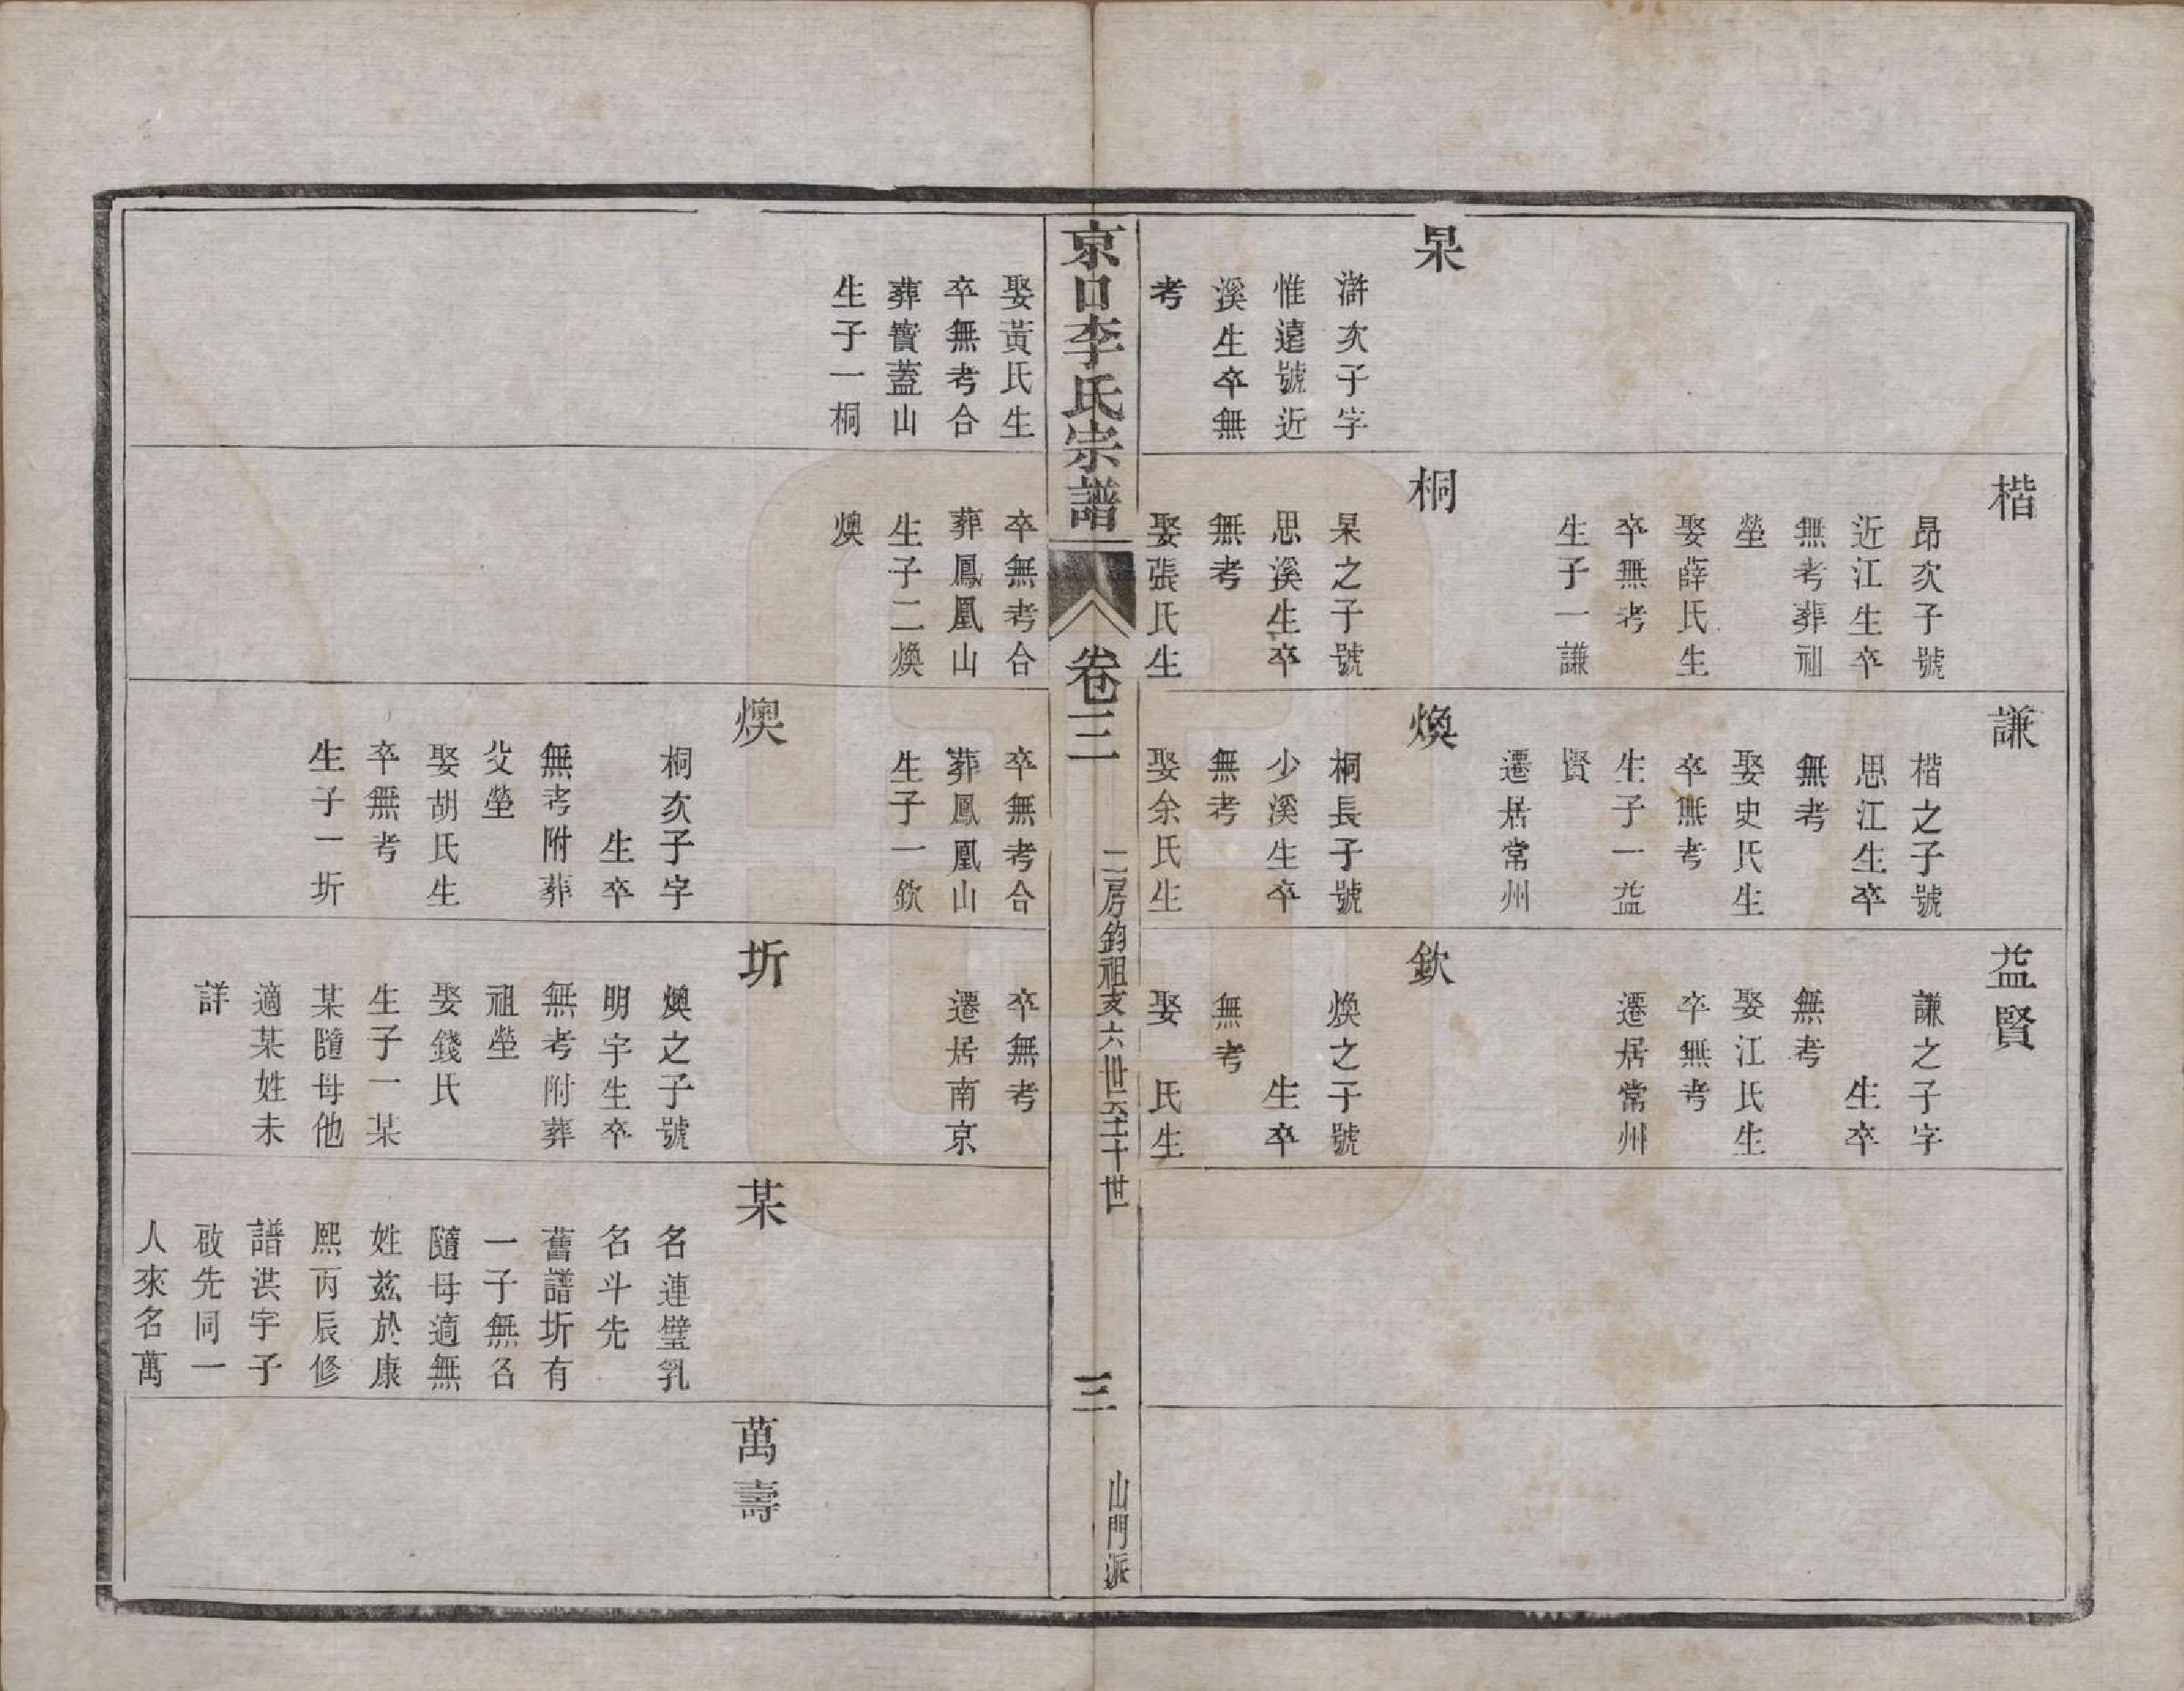 杲
澣次子字
惟遠號近
溪生卒無
考
楷
昂次子號
近江生卒
無考葬祖
塋
娶薛氏生
卒無考
生子一謙
桐
杲之子號
思溪生卒
無考
娶張氏生
謙
楷之子號
思江生卒
無考
娶史氏生
卒無考
生子一益
賢
遷居常州
煥
桐長子號
少溪生卒
無考
娶余氏生
益賢
謙之子字
生卒
無考
娶江氏生
卒無考
遷居常州
欽
煥之子號
生卒
無考
娶 氏生
京口李氏宗譜
卷三
二房鈞祖支六世至十世
三
山門派
娶黃氏生
卒無考合
葬寶蓋山
生子一桐
卒無考合
葬鳳凰山
生子二煥
燠
卒無考合
葬鳳凰山
生子一欽
燠
桐次子字
生卒
無考附葬
父塋
娶胡氏生
卒無考
生子一圻
卒無考
遷居南京
圻
燠之子號
明宇生卒
無考附葬
祖塋
娶錢氏
生子一某
某隨母他
適某姓未
詳
某
名連璧乳
名斗先
舊譜圻有
一子無名
隨母適無
姓茲於康
熙丙辰修
譜洪宇子
啟先同一
人來名萬
萬壽